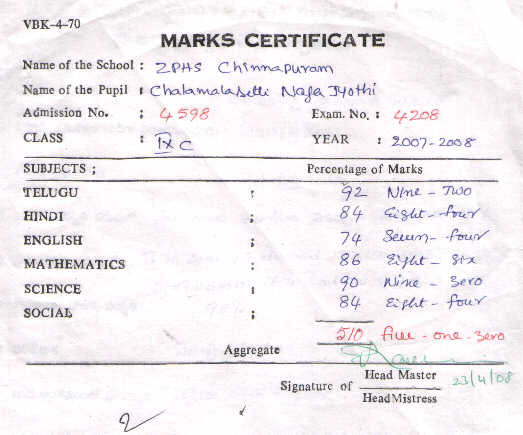 VBK-4-70
MARKS CERTIFICATE
Name of the School : ZPHS Chinnapuram
Name of the Pupil : Chalamalasetti Naga Jyothi
Admission No. : 4598 Exam. No. : 4208
CLASS : IX C YEAR : 2007-2008
SUBJECTS ; Percentage of Marks
TELUGU : 92 Nine - Two
HINDI ; 84 Eight - four
ENGLISH ; 74 Seven - four
MATHEMATICS : 86 Eight - six
SCIENCE : 90 Nine - zero
SOCIAL ; 84 Eight - four
Aggregate 510 five - one - zero
Signature of Head Master 23/4/08
Head Mistress
2